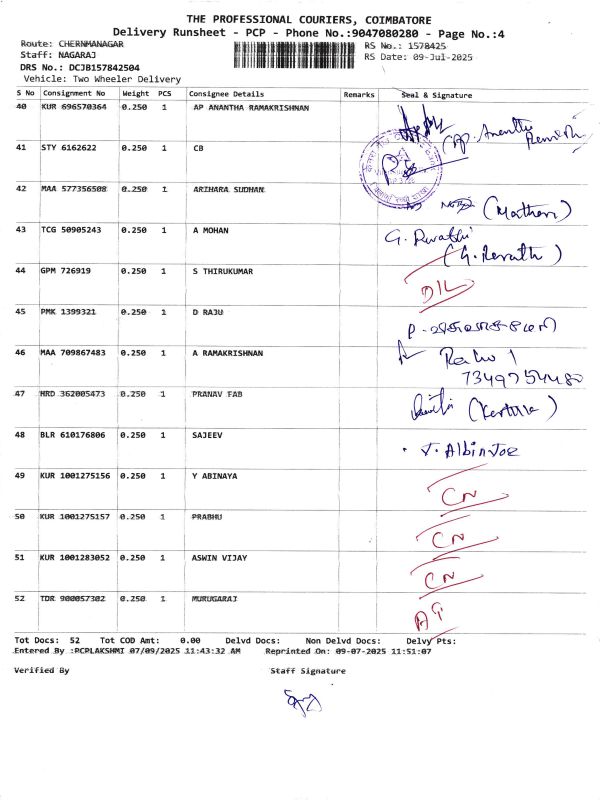 THE PROFESSIONAL COURIERS, COIMBATORE
Delivery Runsheet - PCP - Phone No.:9047080280 - Page No.:4
Route: CHERNMANAGAR RS No.: 1578425
Staff: NAGARAJ RS Date: 09-Jul-2025
DRS No.: DCJB157842504
Vehicle: Two Wheeler Delivery
S No Consignment No Weight PCS Consignee Details Remarks Seal & Signature
40 KUR 696570364 0.250 1 AP ANANTHA RAMAKRISHNAN
41 STY 6162622 0.250 1 CB
42 MAA 577356508 0.250 1 ARIHARA SUDHAN
43 TCG 50905243 0.250 1 A MOHAN G. Revathi
(G. Revathi)
44 GPM 726919 0.250 1 S THIRUKUMAR D/L
45 PMK 1399321 0.250 1 D RAJU
46 MAA 709867483 0.250 1 A RAMAKRISHNAN
47 HRD 362005473 0.250 1 PRANAV FAB
48 BLR 610176806 0.250 1 SAJEEV J. Albin Joe
49 KUR 1001275156 0.250 1 Y ABINAYA CN
50 KUR 1001275157 0.250 1 PRABHU CN
51 KUR 1001283052 0.250 1 ASWIN VIJAY CN
52 TDR 900057302 0.250 1 MURUGARAJ
Tot Docs: 52 Tot COD Amt: 0.00 Delvd Docs: Non Delvd Docs: Delvy Pts:
Entered By :PCPLAKSHMI 07/09/2025 11:43:32 AM Reprinted On: 09-07-2025 11:51:07
Verified By Staff Signature